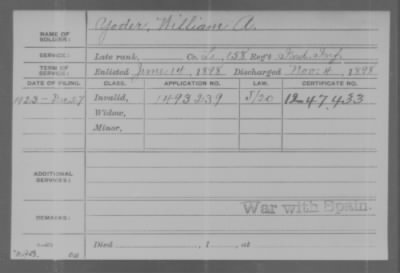 NAME OF SOLDIER: Yoder, William A.
SERVICE: Late rank, Co. L, 158 Reg't Ind. Inf.
TERM OF SERVICE: Enlisted June 14, 1898 Discharged Nov. 4, 1898
DATE OF FILING. CLASS. APPLICATION NO. LAW. CERTIFICATE NO.
1923 Invalid, 1493239 1247433
Widow,
Minor,
ADDITIONAL SERVICES:
War with Spain.
REMARKS:
Died , 1 , at